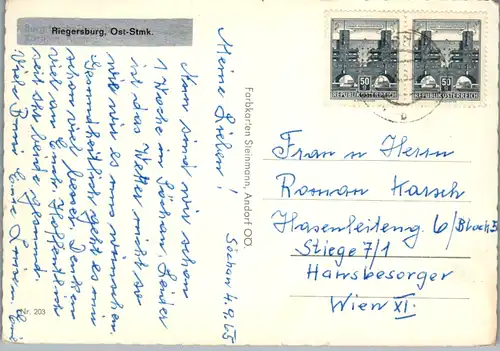 Riegersburg, Ost-Stmk.
Söchau 4.9.65
Meine Lieben!
Nun sind wir schon
1 Woche in Söchau. Leider
ist das Wetter nicht so
wie wir es uns wünschen.
Gesundheitlich geht es mir
schon viel besser. Denken
viel an Euch. Hoffentlich
seid Ihr beide gesund.
Viele Bussi Eure
Farbkarten Steinmann, Andorf OÖ.
Nr. 203
50
REPUBLIK ÖSTERREICH
50
REPUBLIK ÖSTERREICH
Frau u Herrn
Roman Karsch
Hasenleiteng. 6/Block
Stiege 7/1
Hausbesorger
Wien XI.